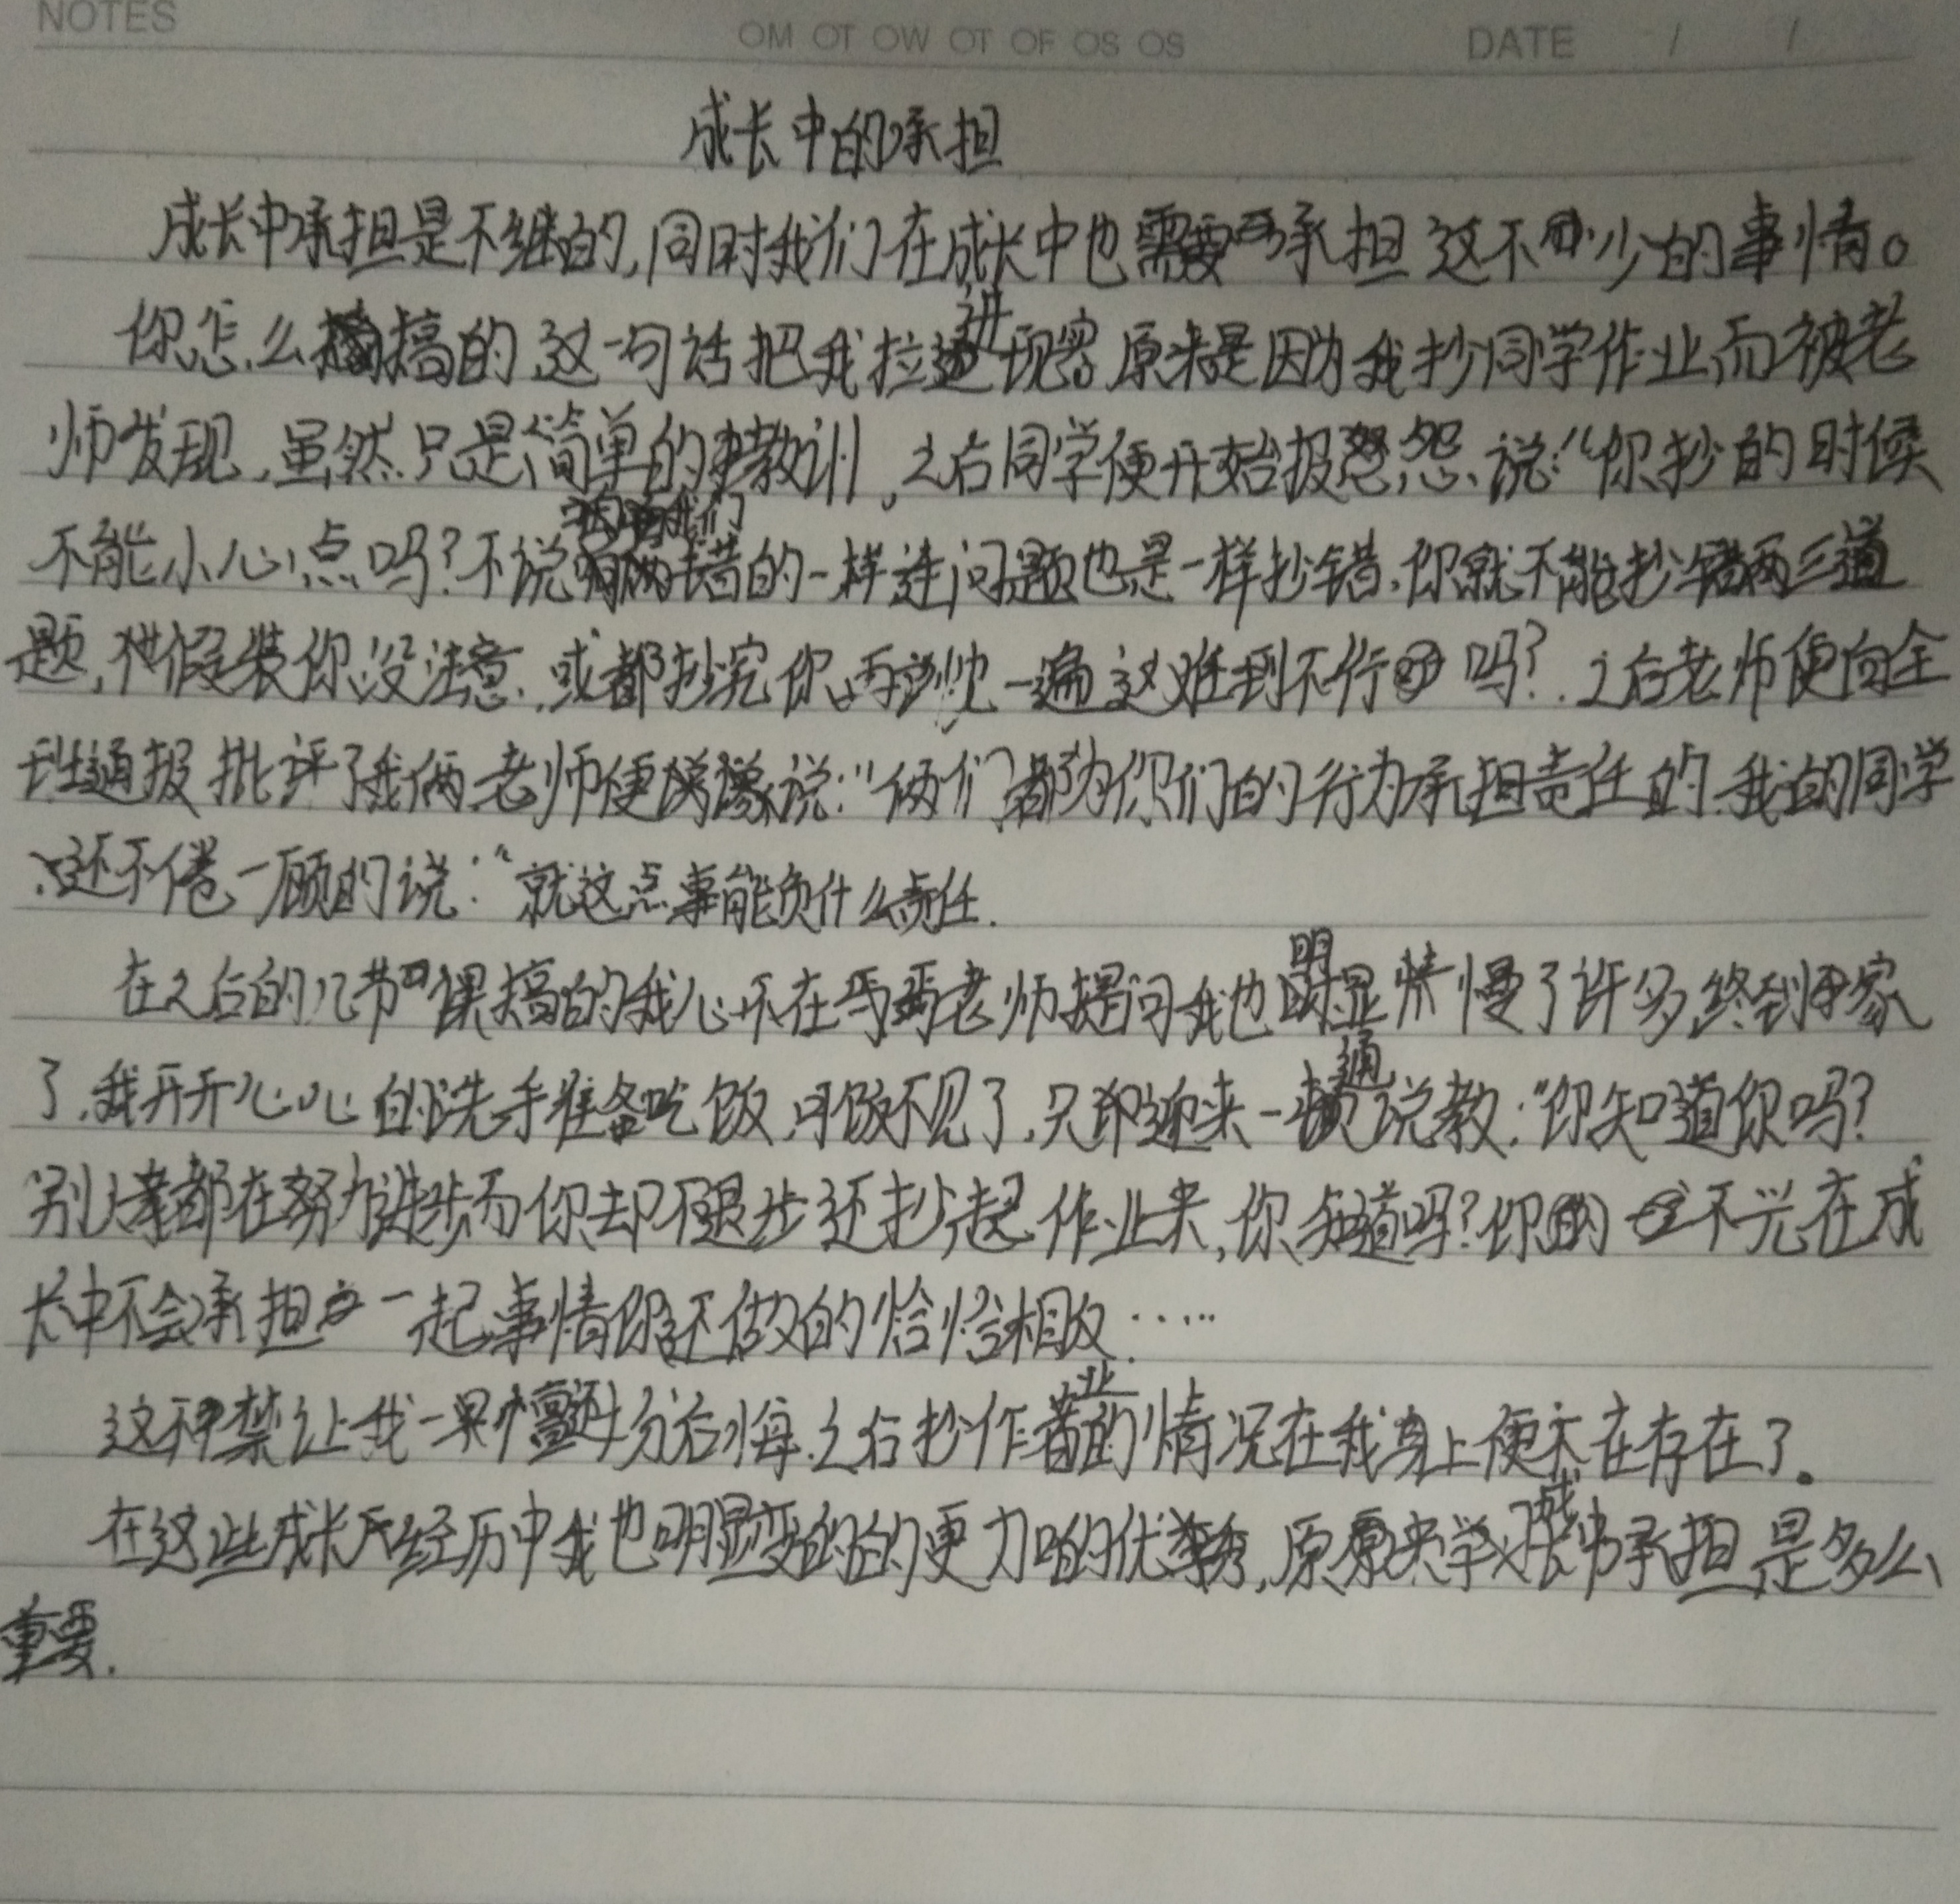 NOTES
OM OT OW OT OF OS OS DATE / /
成长中的承担
成长中承担是不继的,同时我们在成长中也需要承担这不少的事情。
你怎么搞的这一句话把我拉进现实。原来是因为我抄同学作业而被老
师发现,虽然只是简单的教训,之后同学便开始报怨,说:“你抄的时候
不能小心点吗?不说我们错的一样连问题也是一样抄错,你就不能抄错两三道
题,假装你没注意,或都抄完你再改一遍这难到不行吗?之后老师便向全
班通报批评了我俩,老师便说:“俩们都为你们的行为承担责任的,我的同学
还不倦一顾的说:“就这点事能负什么责任.
在之后的几节课搞的我心不在焉老师提问我也明显慢了许多,终到家
了,我开开心心的洗手准备吃饭,可饭不见了,只却迎来一通说教:“你知道你吗?
别人都在努力进步而你却不退步还抄起作业来,你知道吗?你不光在成
长中不会承担一起事情你还做的恰恰相反……
这不禁让我十分后悔,之后抄作业的情况在我身上便不在存在了。
在这些成长经历中我也明显变的的更力的优秀,原来学成长中承担是多么
重要.